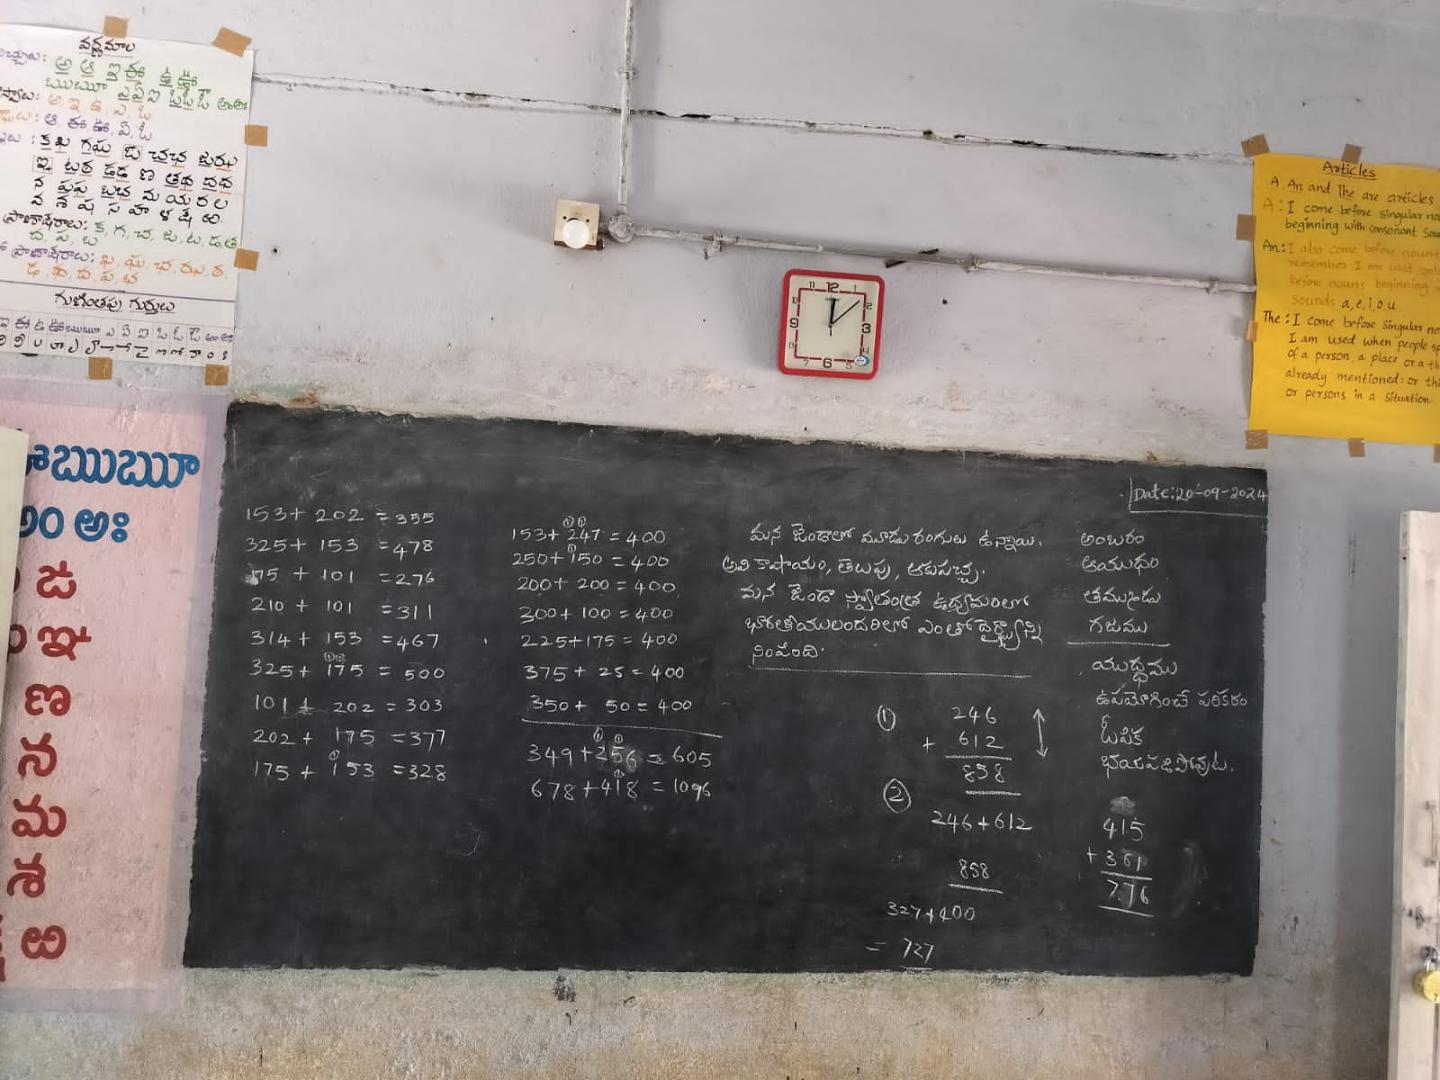 వర్ణమాల
అ ఆ ఇ ఈ ఉ ఊ
ఋ ౠ ఎ ఏ ఐ ఒ ఓ ఔ అం అః
అ, ఇ, ఉ, ఎ, ఒ
ఆ ఈ ఊ, ఏ, ఓ
క ఖ గ ఘ ఙ చ ఛ జ ఝ
ఞ ట ఠ డ ఢ ణ త థ ద ధ
న ప ఫ బ భ మ య ర ల
వ శ ష స హ ళ క్ష ఱ
క, గ, చ, జ, ట, డ, త
ద, ప, బ
ఖ, ఘ, ఛ, ఝ, ఠ,
ఢ, థ, ధ, ఫ, భ
గుణింతపు గుర్తులు
ఋ ౠ
అం అః
జ
ఞ
ణ
న
మ
శ
ఱ
12
11 1
10 2
9 3
4
7 6 5
Articles
A, An and The are articles
A : I come before singular
beginning with consonant
An: I also come before nouns
remember I am used only
before nouns beginning
sounds a, e, i, o, u
The : I come before singular
I am used when people
of a person, a place or a
already mentioned: or
or persons in a situation
Date:20-09-2024
153 + 202 = 355
325 + 153 = 478
175 + 101 = 276
210 + 101 = 311
314 + 153 = 467
325 + 175 = 500
101 + 202 = 303
202 + 175 = 377
175 + 153 = 328
153 + 247 = 400
250 + 150 = 400
200 + 200 = 400
300 + 100 = 400
225 + 175 = 400
375 + 25 = 400
350 + 50 = 400
349 + 256 = 605
678 + 418 = 1096
మన జెండాలో మూడు రంగులు ఉన్నాయి.
అవి కాషాయం, తెలుపు, ఆకుపచ్చ.
మన జెండా స్వాతంత్ర ఉద్యమంలో
భారతీయులందరిలో ఎంతో ధైర్యాన్ని
నింపింది.
① 246
+ 612
858
②
246+612
858
327+400
= 727
అంబరం
ఆయుధం
గజము
యుద్ధము
ఉపయోగించే పరికరం
ఓపిక
భయపడిపోవుట.
415
+ 361
776